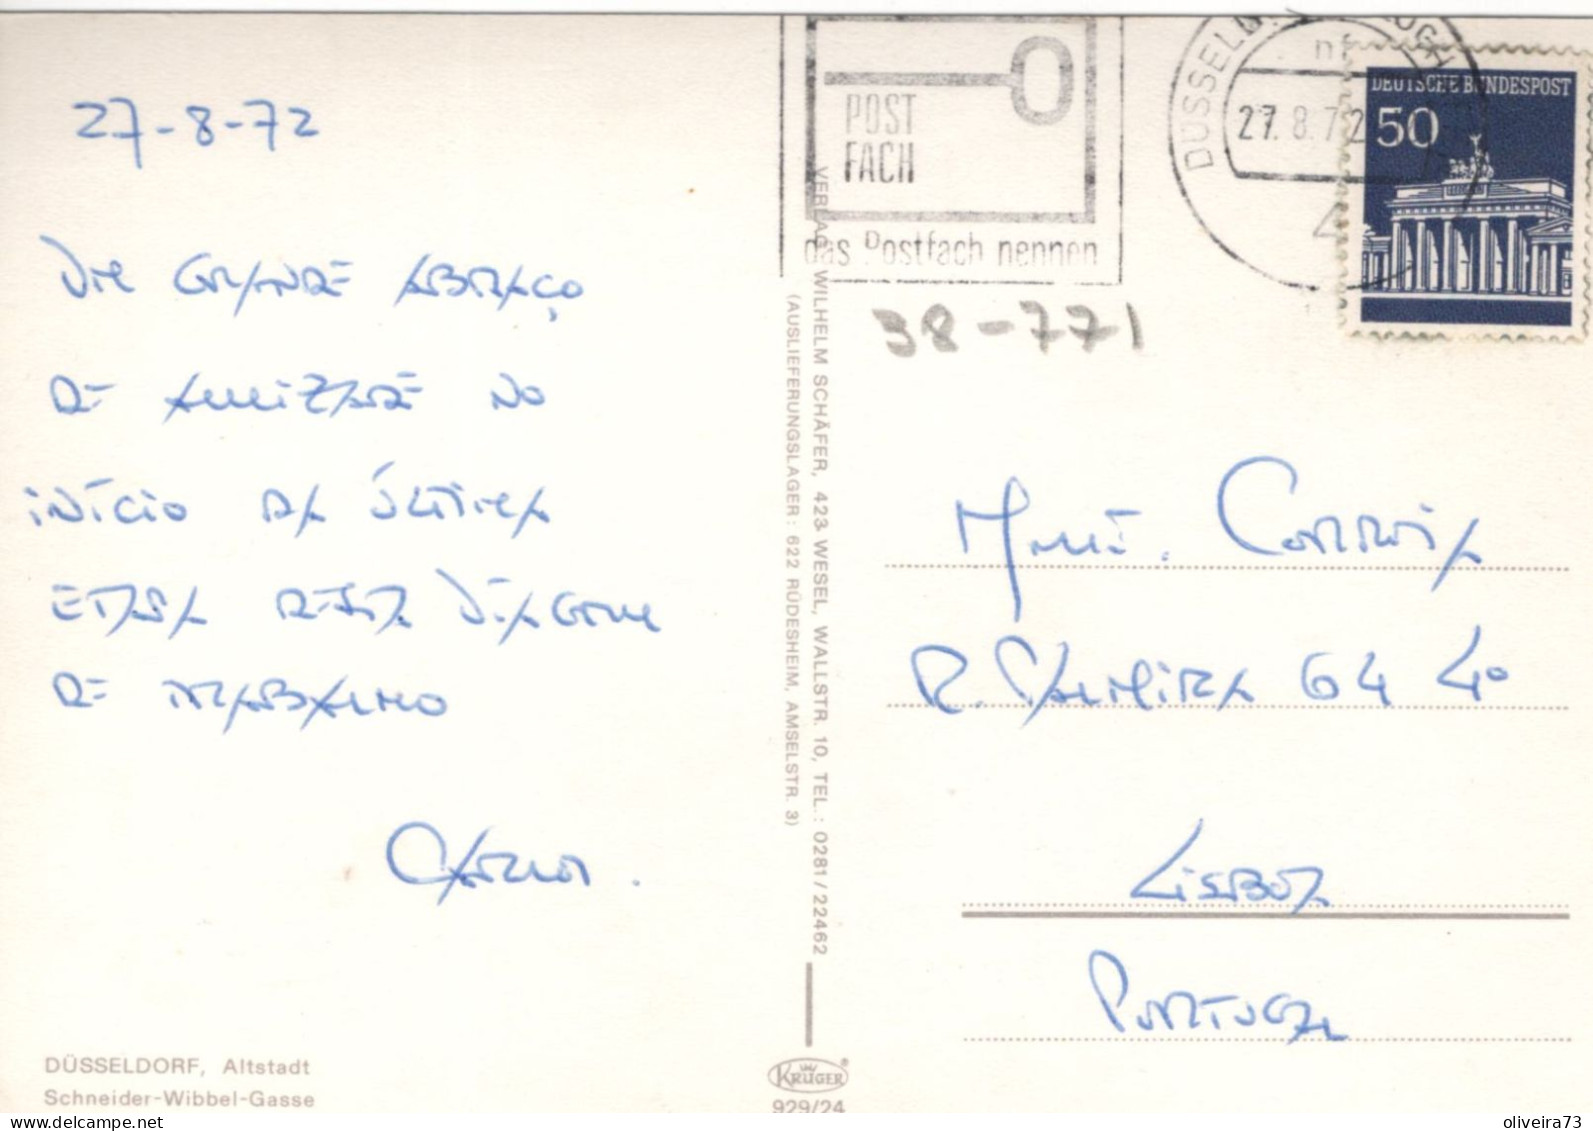 27-8-72
UM GRANDE ABRAÇO
DE AMIZADE NO
INÍCIO DA ÚLTIMA
ETAPA DESTA VIAGEM
DE TRABALHO
DÜSSELDORF, Altstadt
Schneider-Wibbel-Gasse
VERLAG WILHELM SCHÄFER, 423 WESEL, WALLSTR. 10, TEL.: 0281/22462
(AUSLIEFERUNGSLAGER: 622 RÜDESHEIM, AMSELSTR. 3)
KRÜGER
929/24
POST
FACH
das Postfach nennen
27.8.72
DEUTSCHE BUNDESPOST
50
38-771
CORREIA
R. PALMIRA 64 4º
LISBOA
PORTUGAL
oliveira73